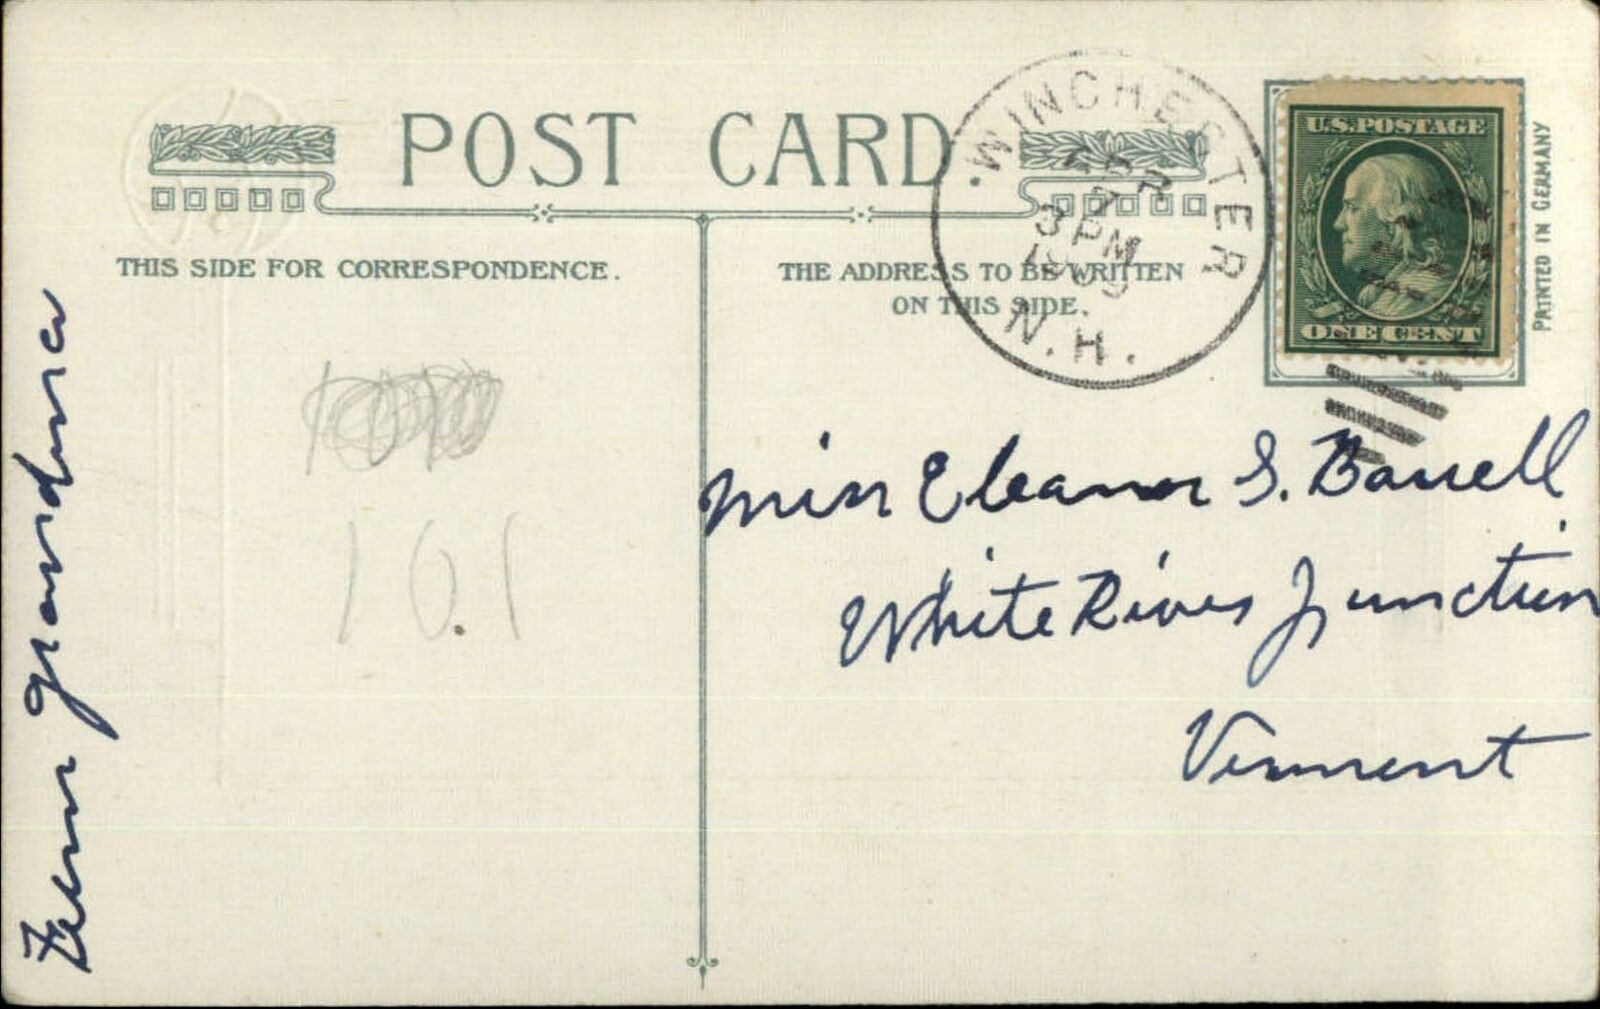 POST CARD
THIS SIDE FOR CORRESPONDENCE.
THE ADDRESS TO BE WRITTEN
ON THIS SIDE.
WINCHESTER
APR
7
3 PM
1909
N.H.
U.S.POSTAGE
ONE CENT
PRINTED IN GERMANY
Miss Eleanor S. Barrell
White River Junction
Vermont
From grandma
10.1